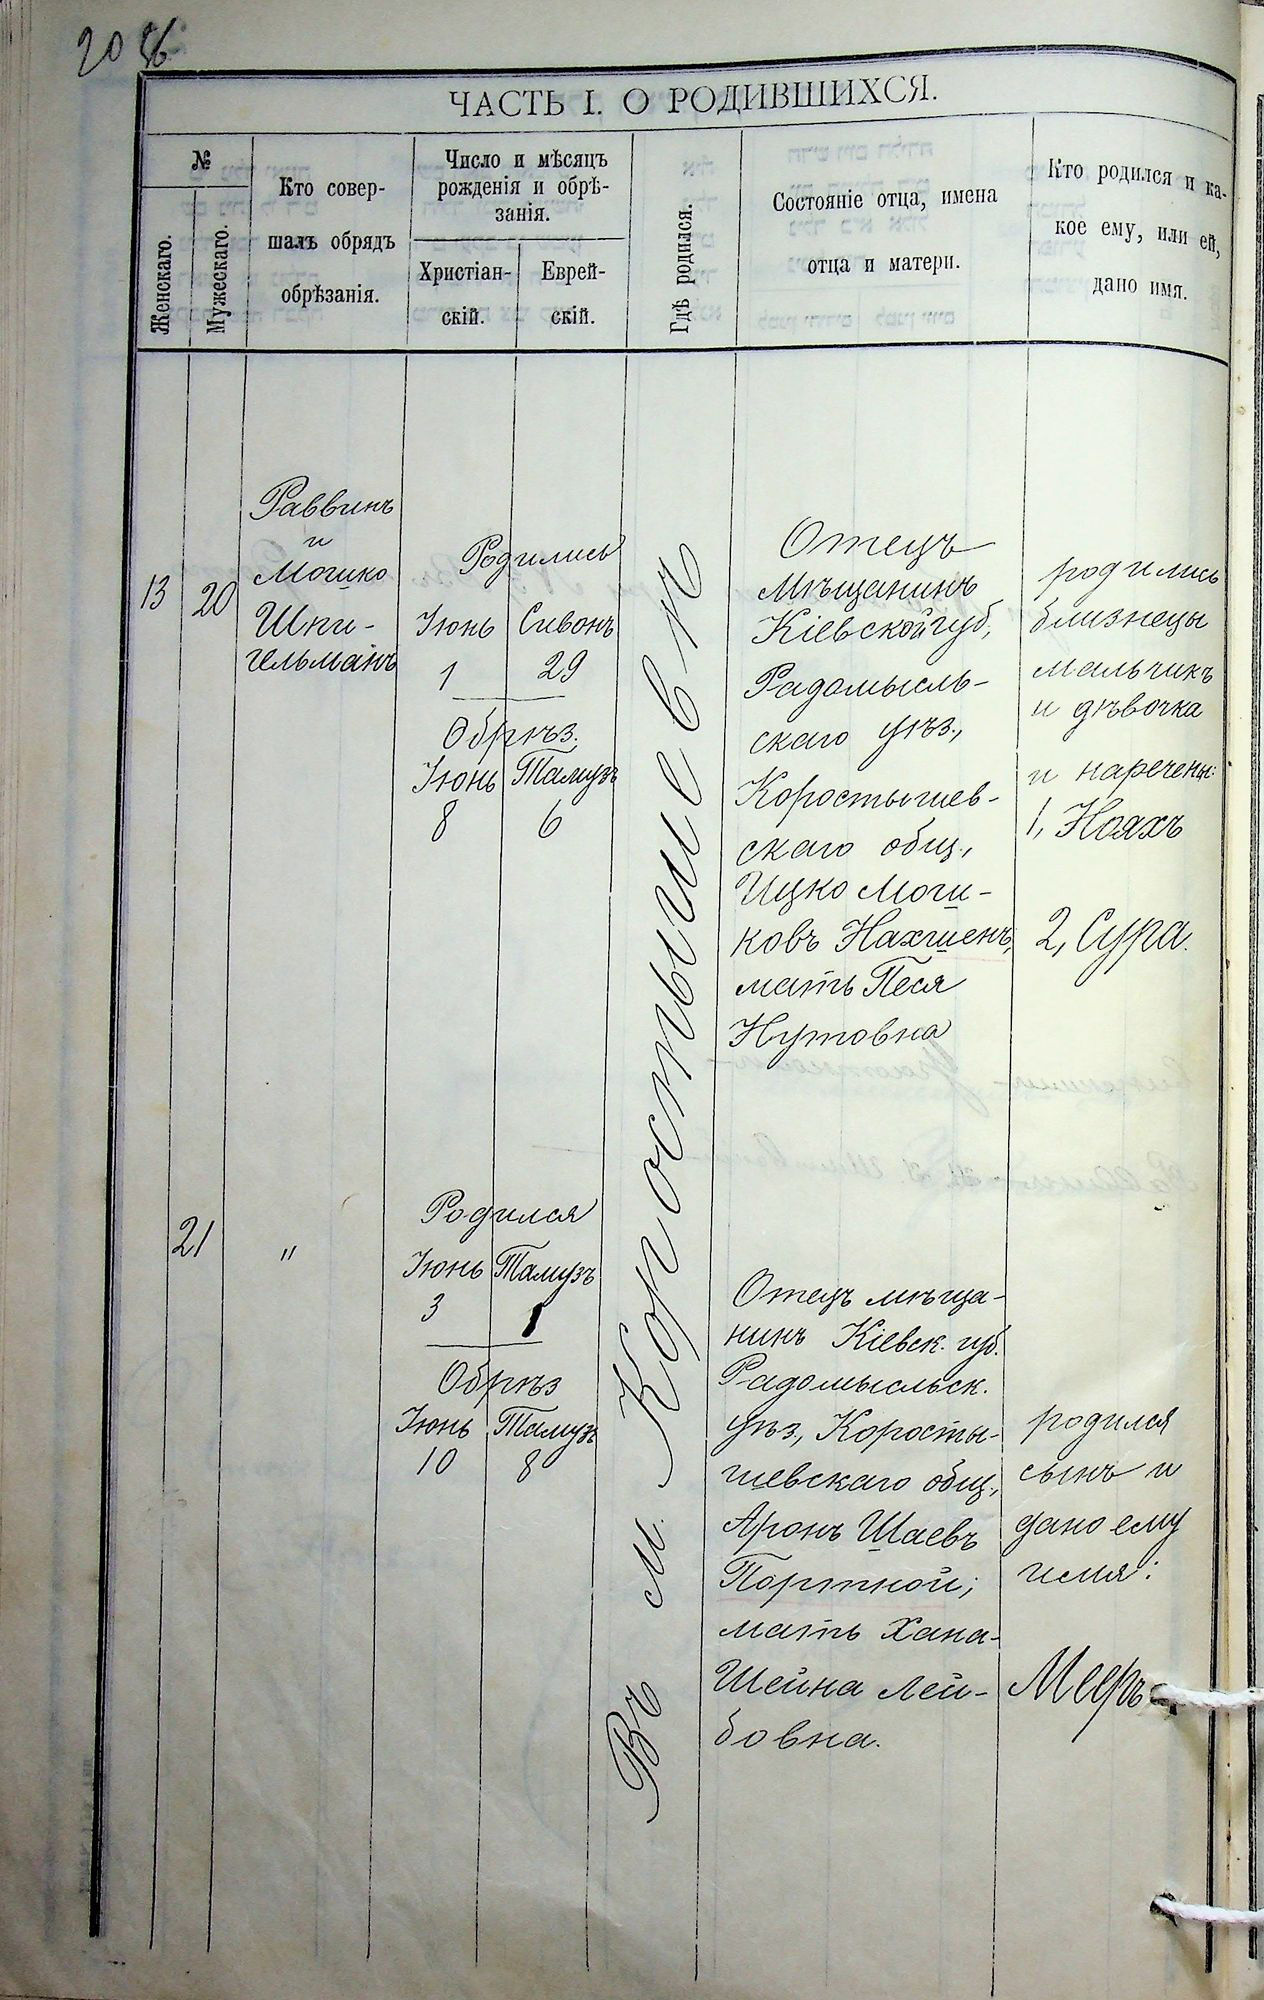 ЧАСТЬ I. О РОДИВШИХСЯ.
№
Женскаго.
Мужескаго.
Кто совер-
шалъ обрядъ
обрѣзанія.
Число и мѣсяцъ
рожденія и обрѣ-
занія.
Христіан-
скій.
Еврей-
скій.
Гдѣ родился.
Состояніе отца, имена
отца и матери.
Кто родился и ка-
кое ему, или ей,
дано имя.
13
20
Раввинъ
и
Мошко
Шпи-
гельманъ
Родились
Іюнь Сивонъ
1 29
Обрѣз.
Іюнь Тамузъ
8 6
Въ м. Коростышевѣ
Отецъ
Мѣщанинъ
Кіевской губ,
Радомысль-
скаго уѣз.,
Коростышев-
скаго общ.,
Ицко Мош-
ковъ Нахшенъ,
мать Песя
Нутовна
родились
близнецы
мальчикъ
и дѣвочка
и наречены:
1, Нояхъ
2, Сура.
21
"
Родился
Іюнь Тамузъ
3 1
Обрѣз
Іюнь Тамузъ
10 8
Отецъ мѣща-
нинъ Кіевск. губ.
Радомысльск.
уѣз., Коросты-
шевскаго общ.,
Аронъ Шаевъ
Портной;
мать Хана-
Шейна Лей-
бовна.
родился
сынъ и
дано ему
имя:
Меръ